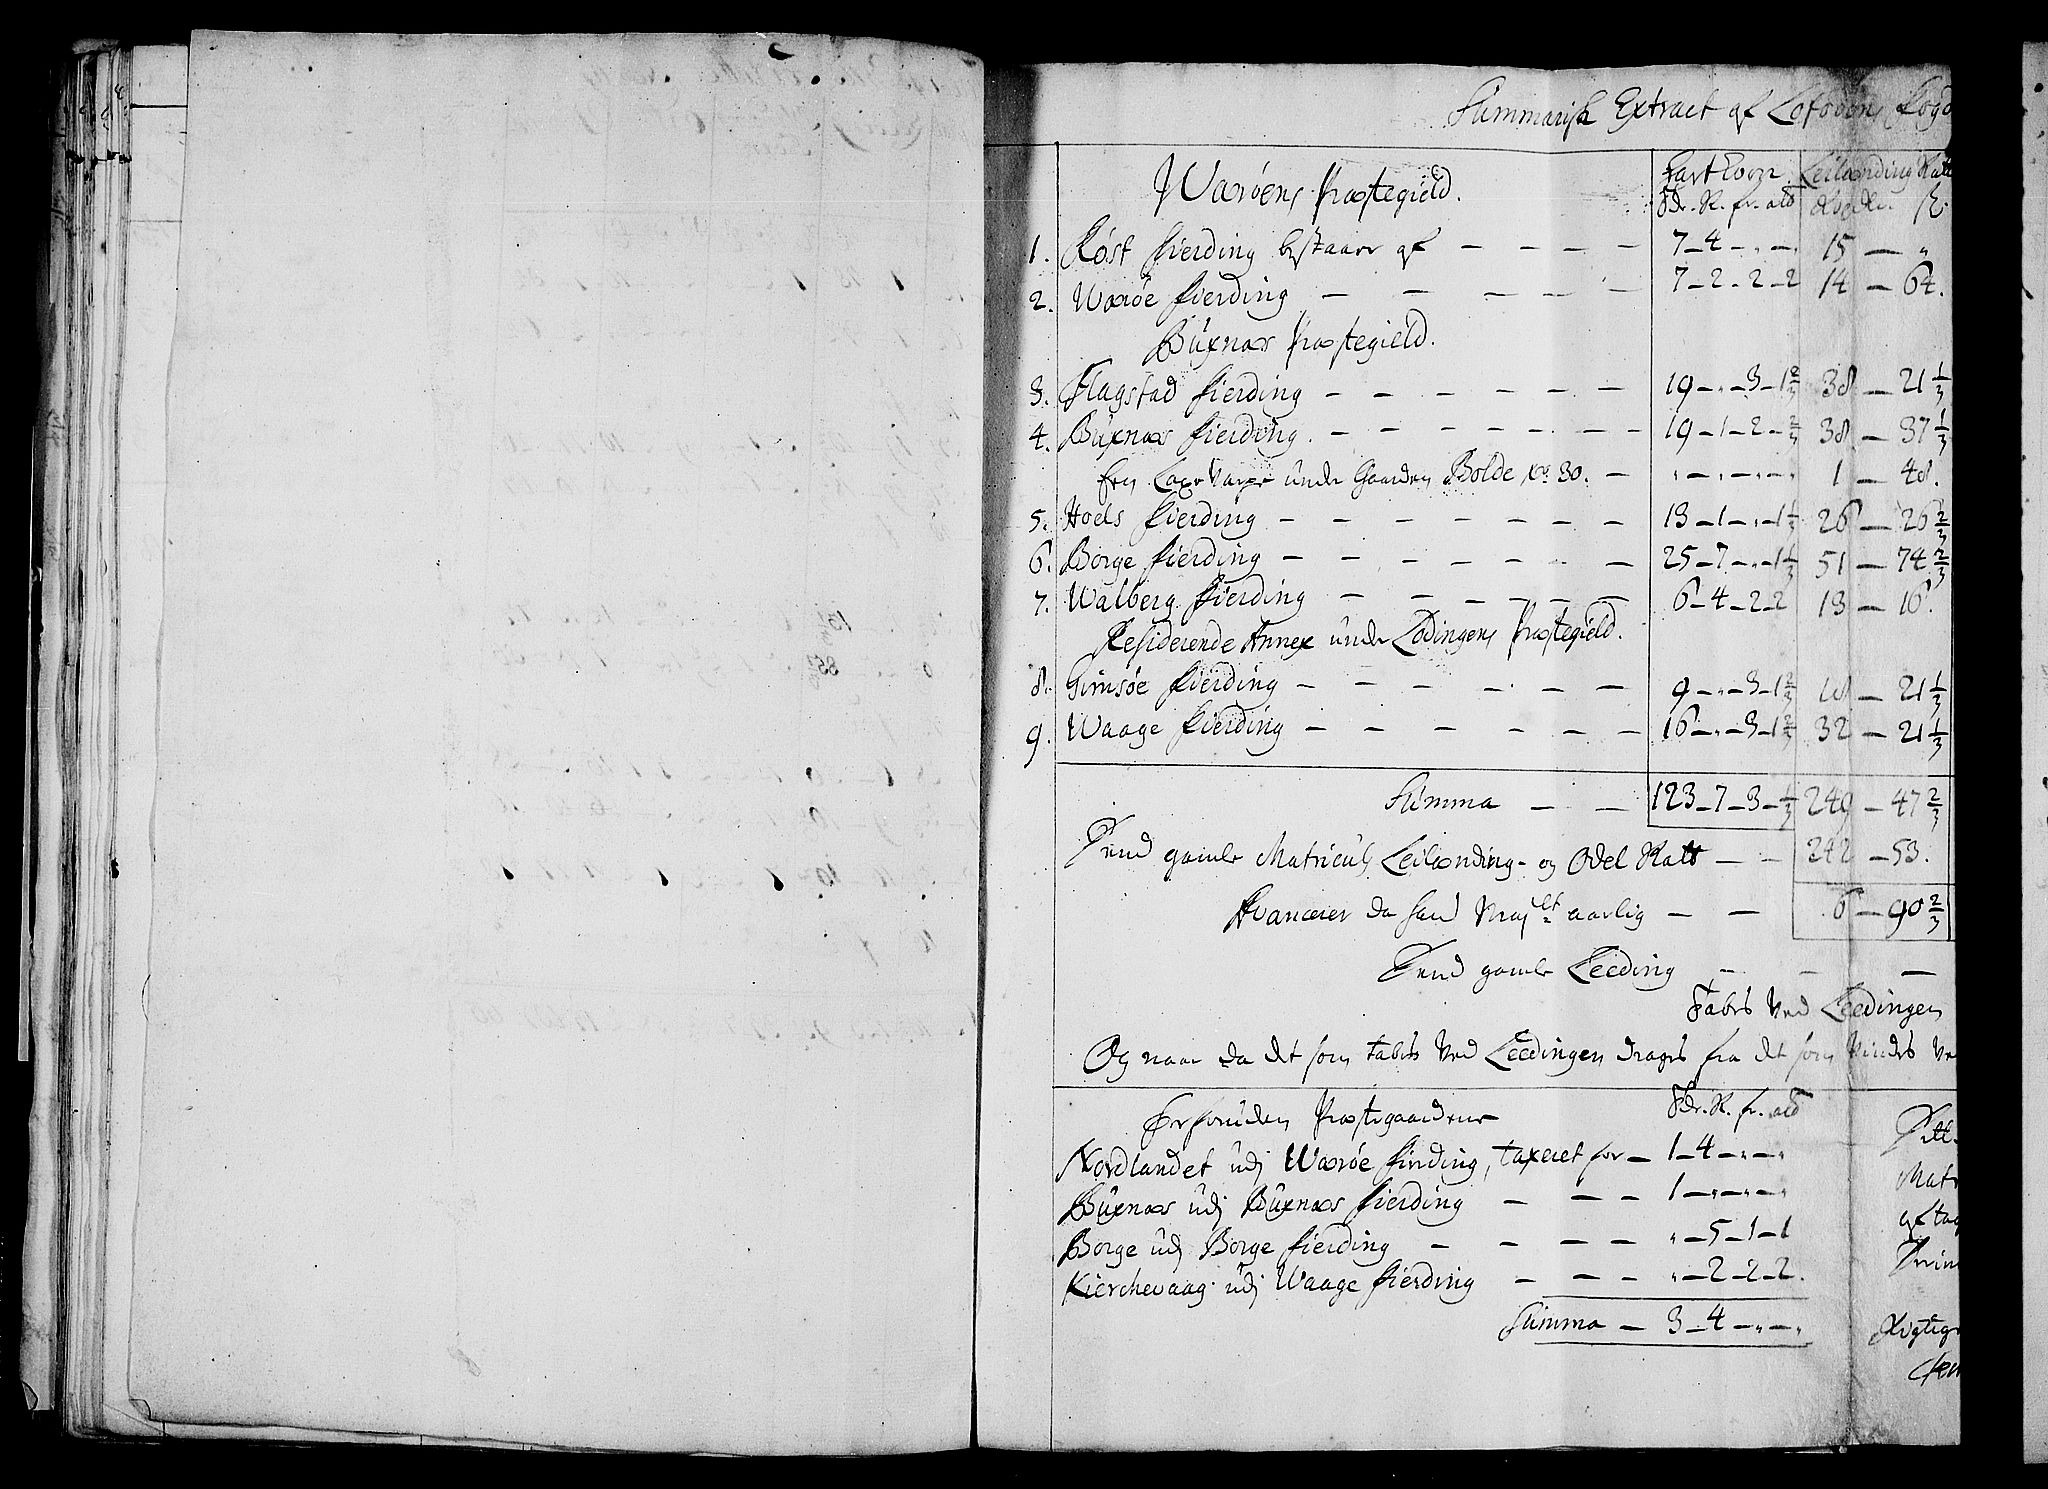 Summarisk Extract af Lofodens Fogd
Warøens Præstegield.
Hart Korn Leilænding Skatt
Wdr. R. fr. ald
1. Røst fierding bestaaer af — — — — 7 – 4 – „ – „ 15 — „
2. Warøe fierding — — — — — 7 – 2 – 2 – 2 14 — 64.
Buxnæs Præstegield.
3. Flagstad fierding — — — — — — 19 – „ – 3 – 1 2/3 38 — 21 1/3
4. Buxnæs fierding. — — — — — — — 19 – 1 – 2 – 2/3 38 — 37 1/3
Een Laxe Varpe under Gaarden Bolde No. 30. — „ – „ – „ – „ 1 — 48.
5. Hoels fierding — — — — — — — 13 – 1 – „ – 1 1/3 26 — 26 2/3
6. Borge fierding — — — — — — — 25 – 7 – „ – 1 1/3 51 — 74 2/3
7. Walberg fierding — — — — — — 6 – 4 – 2 – 2 13 — 16.
Residerende Annex under Lødingens Præstegield.
8. Gimsøe fierding — — — — — — 9 – „ – 3 – 1 2/3 18 — 21 1/3
9. Waage fierding — — — — — — 16 – „ – 3 – 1 2/3 32 — 21 1/3
Summa — — 123 – 7 – 3 – 1/3 249 — 47 2/3
Dend gamle Matriculs Leilænding- og Odel Skatt — — 242 — 53.
Avancerer da hans Majtt aarlig — — 6 — 90 2/3
Dend gamle Leeding — — —
Tabes ved Leedingen
Og naar da det som tabis ved Leedingen drages fra det som vindes ve
Foruden Præstegaardene Wdr. R. fr. ald
Nordlandet udj Warøe fierding, taxeret for — 1 – 4 – „ – „
Buxnæs udj Buxnæs fierding — — — 1 – „ – „ – „
Borge udj Borge fierding — — — — „ – 5 – 1 – 1
Kierchevaag udj Waage fierding — — — „ – 2 – 2 – 2.
Summa — 3 – 4 – „ – „
Matr
aftag
Rigtig